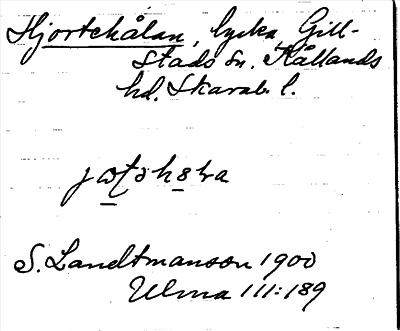 Hjortehålan, lycka, Gill-
stads sn. Kållands
hd. Skarab. l.
S. Landtmanson 1900
Ulma 111:189